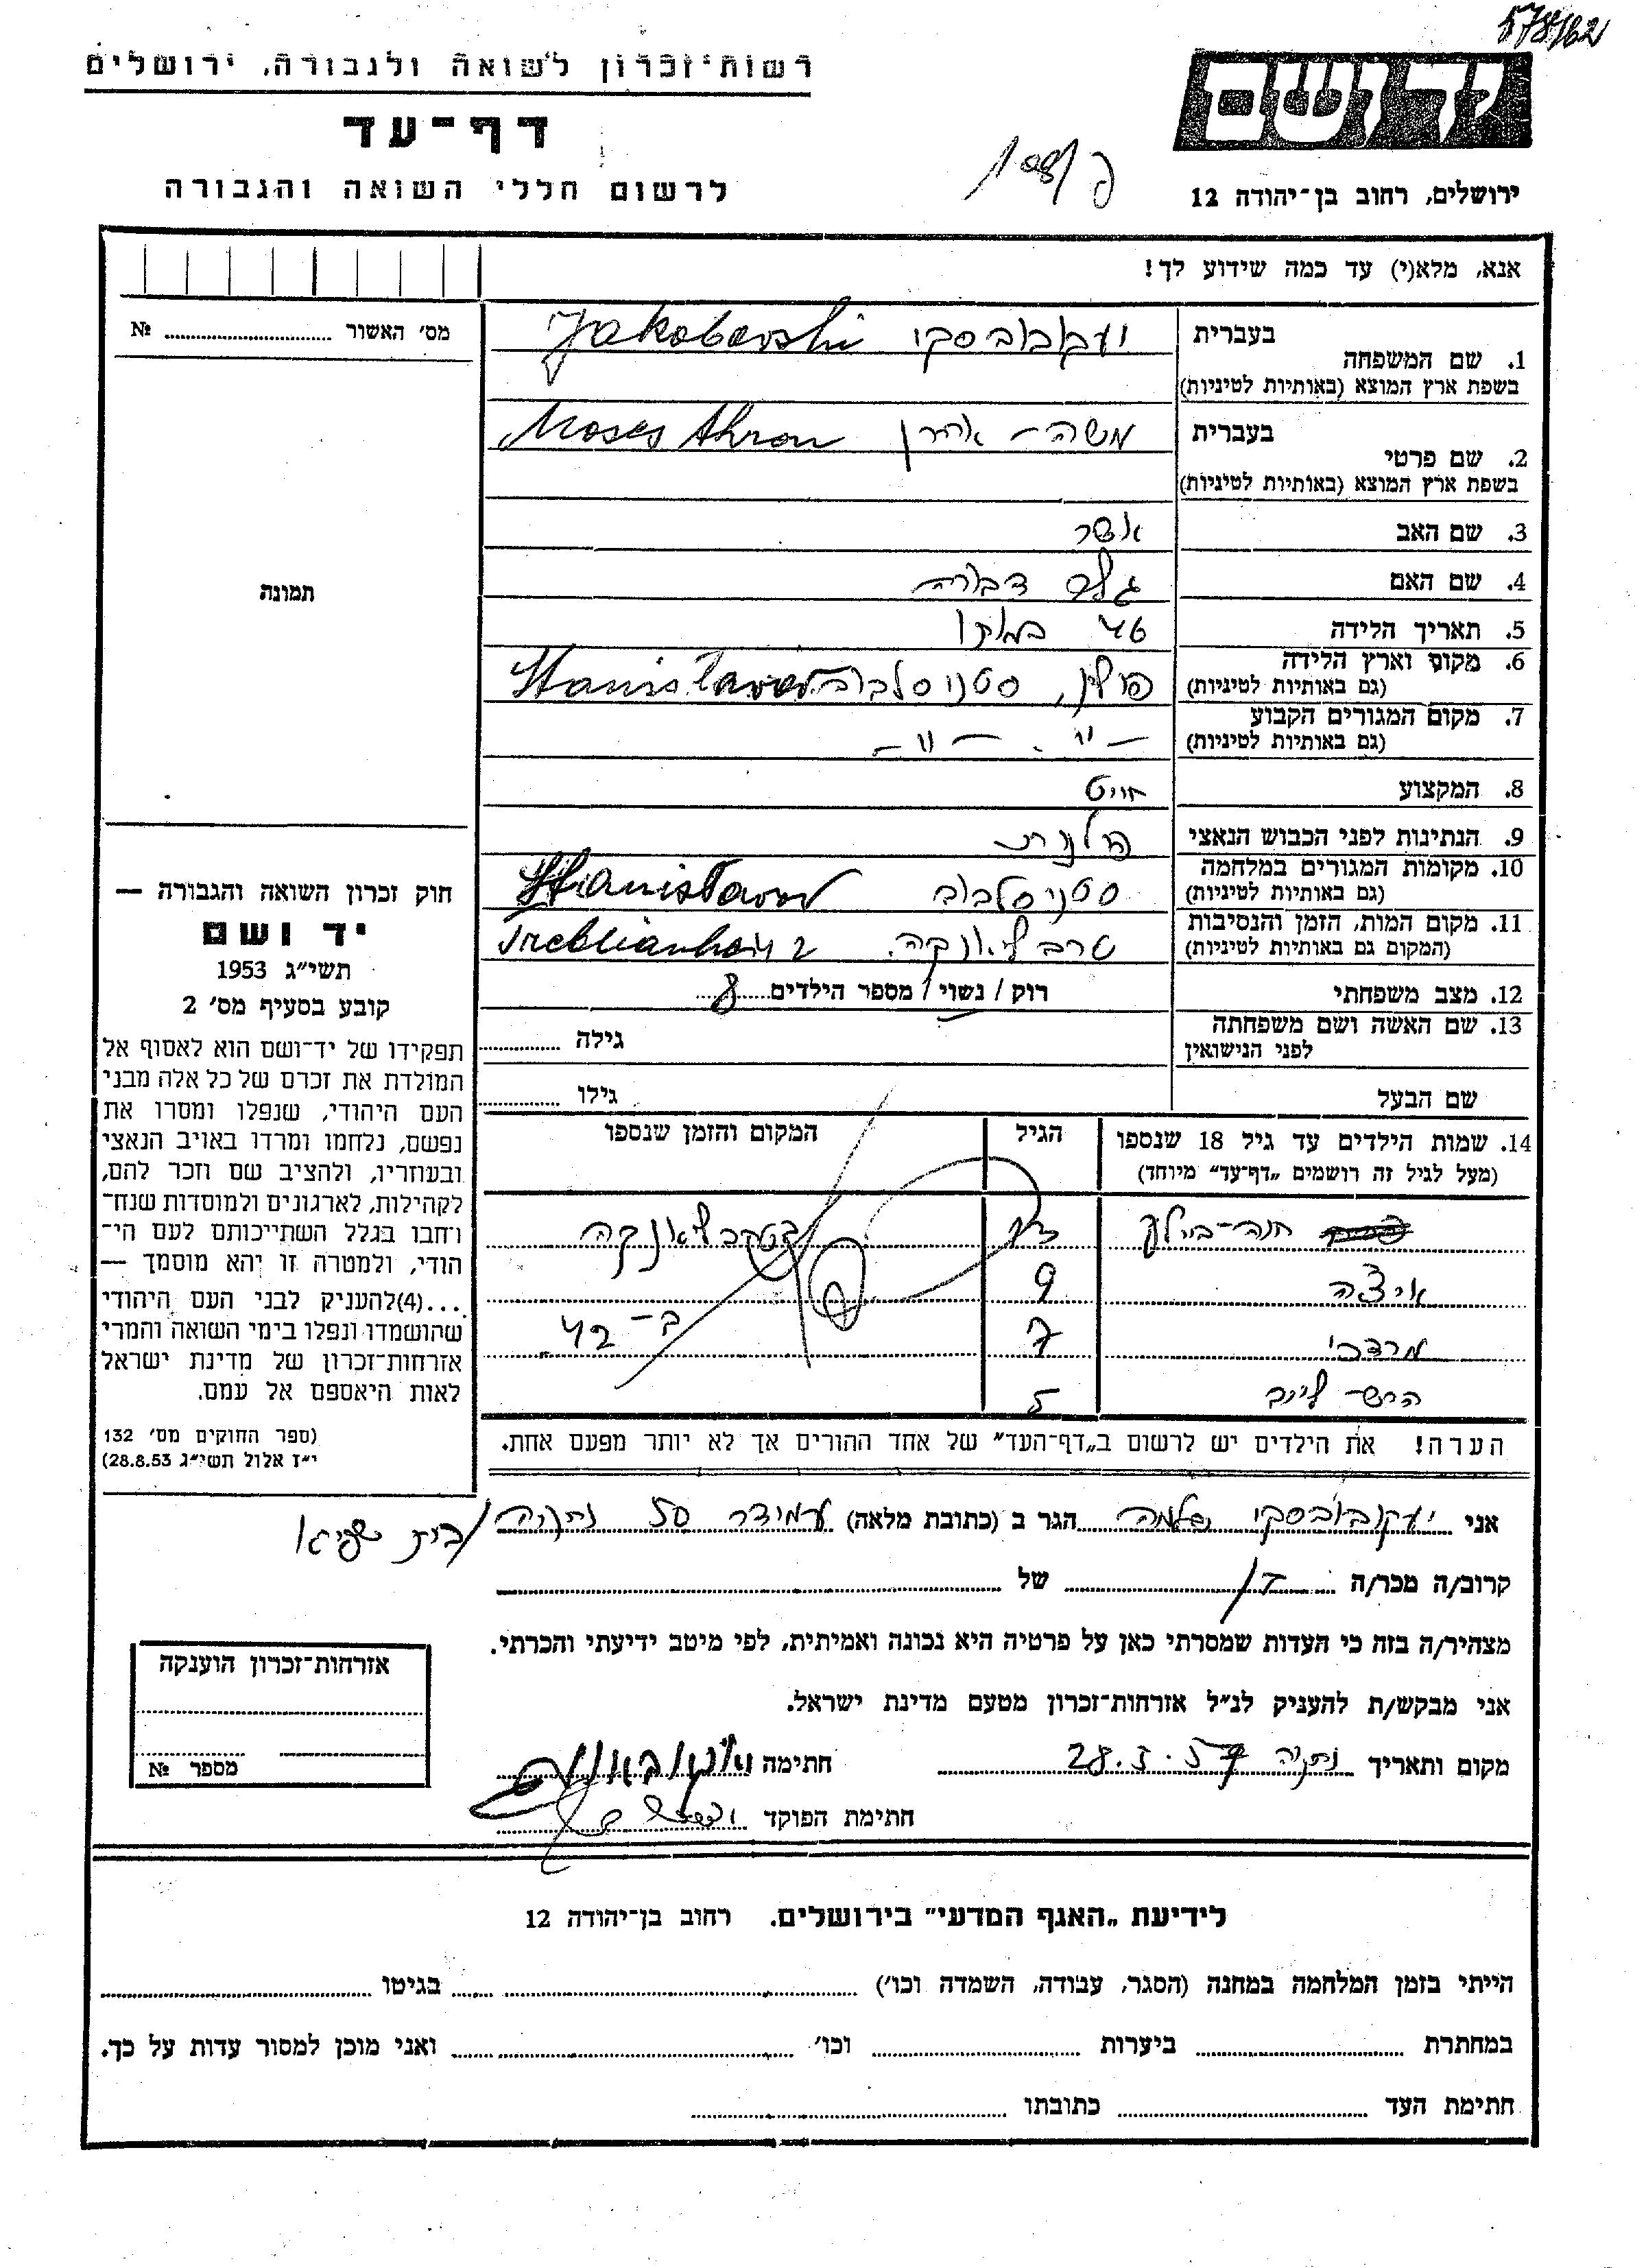 578/62
רשות־זכרון לשואה ולגבורה, ירושלים
דף־עד
לרשום חללי השואה והגבורה
יד ושם
ירושלים, רחוב בן־יהודה 12
אנא, מלא(י) עד כמה שידוע לך!
מס׳ האשור № 
תמונה
חוק זכרון השואה והגבורה —
יד ושם
תשי״ג 1953
קובע בסעיף מס׳ 2
תפקידו של יד־ושם הוא לאסוף אל
המולדת את זכרם של כל אלה מבני
העם היהודי, שנפלו ומסרו את
נפשם, נלחמו ומרדו באויב הנאצי
ובעוזריו, ולהציב שם וזכר להם,
לקהילות, לארגונים ולמוסדות שנח־
רחבו בגלל השתייכותם לעם הי־
הודי, ולמטרה זו יהא מוסמך —
...(4)להעניק לבני העם היהודי
שהושמדו ונפלו בימי השואה והמרי
אזרחות־זכרון של מדינת ישראל
לאות היאספם אל עמם.
(ספר החוקים מס׳ 132
י״ז אלול תשי״ג 28.8.53)
בעברית יעקובובסקי Jakobovski
1. שם המשפחה
בשפת ארץ המוצא (באותיות לטיניות)
בעברית משה - אהרן Moses Ahron
2. שם פרטי
בשפת ארץ המוצא (באותיות לטיניות)
3. שם האב אשר
4. שם האם דבורה
5. תאריך הלידה
6. מקום וארץ הלידה פולין, סטניסלבוב Stanisławow
(גם באותיות לטיניות)
7. מקום המגורים הקבוע — " — " —
(גם באותיות לטיניות)
8. המקצוע חייט
9. הנתינות לפני הכבוש הנאצי פולנית
10. מקומות המגורים במלחמה סטניסלבוב Stanisławow
(גם באותיות לטיניות)
11. מקום המות, הזמן והנסיבות טרבליאנקה.
(המקום גם באותיות לטיניות)
12. מצב משפחתי רוק / נשוי / מספר הילדים 8
13. שם האשה ושם משפחתה גילה
לפני הנישואין
שם הבעל גילו
14. שמות הילדים עד גיל 18 שנספו הגיל המקום והזמן שנספו
(מעל לגיל זה רושמים „דף־עד״ מיוחד)
חנה - ביילע בטרבליאנקה
איצה 9
מרדכי 7 ב - 42
הירש לייב 5
הערה! את הילדים יש לרשום ב„דף־העד״ של אחד ההורים אך לא יותר מפעם אחת.
אני יעקובובסקי שלמה הגר ב (כתובת מלאה) עמידר 50 נתניה
קרוב/ה מכר/ה בן של
מצהיר/ה בזה כי העדות שמסרתי כאן על פרטיה היא נכונה ואמיתית, לפי מיטב ידיעתי והכרתי.
אני מבקש/ת להעניק לנ״ל אזרחות־זכרון מטעם מדינת ישראל.
מקום ותאריך נתניה 28.3.57 חתימה
חתימת הפוקד
אזרחות־זכרון הוענקה
מספר №
לידיעת „האגף המדעי״ בירושלים. רחוב בן־יהודה 12
הייתי בזמן המלחמה במחנה (הסגר, עבודה, השמדה וכו׳) בגיטו
במחתרת ביערות וכו׳ ואני מוכן למסור עדות על כך.
חתימת העד כתובתו